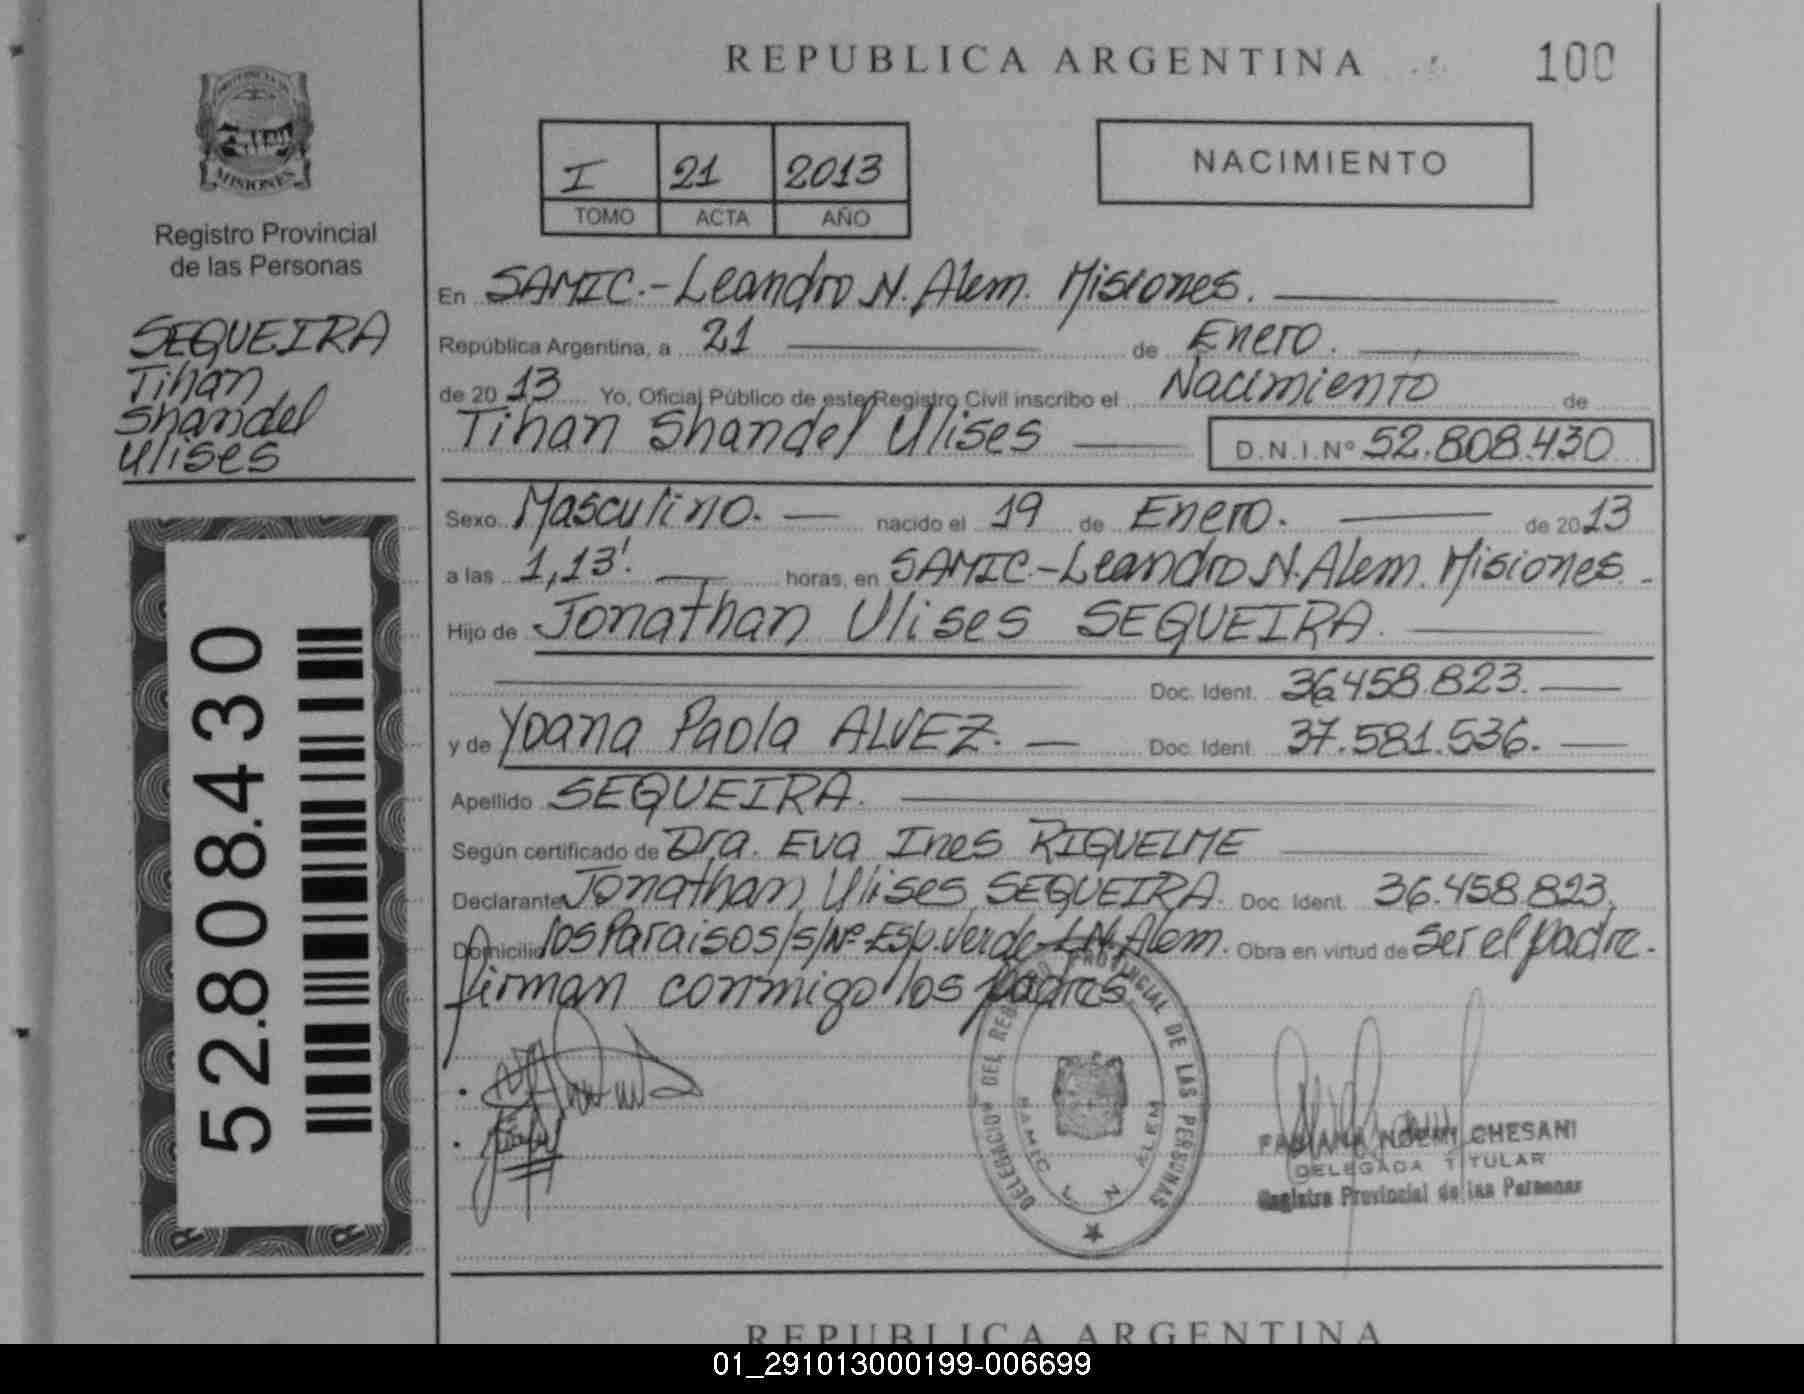 REPUBLICA ARGENTINA
100
PROVINCIA DE
MISIONES
Registro Provincial
de las Personas
SEQUEIRA
Tihan
Shandel
Ulises
52.808.430
I 21 2013
TOMO ACTA AÑO
NACIMIENTO
En SAMIC.-Leandro N. Alem. Misiones.
República Argentina, a 21 de Enero.
de 2013 Yo, Oficial Público de este Registro Civil inscribo el Nacimiento de
Tihan Shandel Ulises D.N.I.Nº 52.808.430
Sexo Masculino. nacido el 19 de Enero. de 2013
a las 1,13'. horas, en SAMIC.-Leandro N. Alem. Misiones.
Hijo de Jonathan Ulises SEQUEIRA.
Doc. Ident. 36.458.823.
y de Yoana Paola ALVEZ. Doc. Ident. 37.581.536.
Apellido SEQUEIRA.
Según certificado de Dra. Eva Ines RIQUELME
Declarante Jonathan Ulises SEQUEIRA. Doc. Ident. 36.458.823.
Domicilio los Paraisos/s/Nº-Esp.Verde-L.N.Alem. Obra en virtud de ser el padre.
firman conmigo los padres
DELEGACION DEL REGISTRO PROVINCIAL DE LAS PERSONAS
SAMIC L. N. ALEM
FABIANA NOEMI CHESANI
DELEGADA TITULAR
Registro Provincial de las Personas
REPUBLICA ARGENTINA
01_291013000199-006699